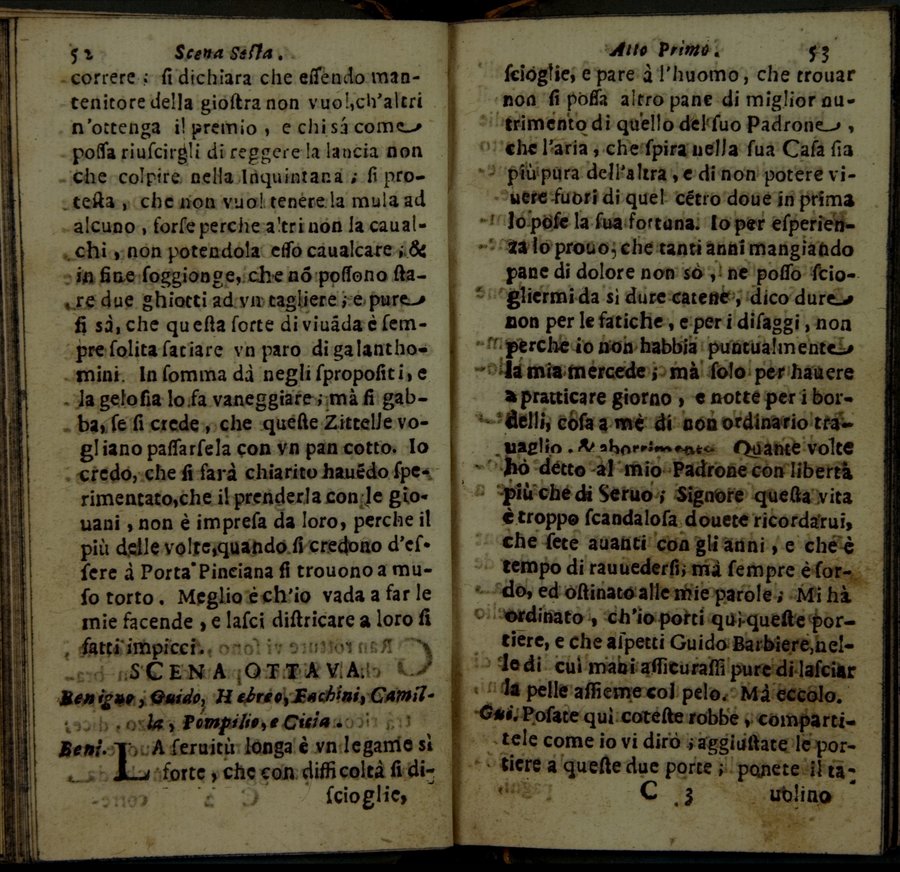 52 Scena Sesta.
correre : ſi dichiara che eſſendo man-
tenitore della gioſtra non vuol,ch'altri
n'ottenga il premio , e chi sá come
poſſa riuſcirgli di reggere la lancia non
che colpire nella Inquintana ; ſi pro-
teſta , che non vuol tenere la mula ad
alcuno , forſe perche altri non la caual-
chi , non potendola eſſo caualcare ; &
in fine ſoggionge, che nõ poſſono ſta-
re due ghiotti ad vn tagliere ; e pure
ſi sà, che queſta ſorte di viuãda è ſem-
pre ſolita ſatiare vn paro di galantho-
mini. In ſomma dà negli ſpropoſiti, e
la geloſia lo fa vaneggiare ; mà ſi gab-
ba, ſe ſi crede , che queſte Zittelle vo-
gliano paſſarſela con vn pan cotto. Io
credo, che ſi farà chiarito hauẽdo ſpe-
rimentato,che il prenderla con le gio-
uani , non è impreſa da loro, perche il
più delle volte,quando ſi credono d'eſ-
ſere à Porta Pinciana ſi trouono a mu-
ſo torto. Meglio è ch'io vada a far le
mie facende , e laſci diſtricare a loro ſi
fatti impicci.
SCENA OTTAVA.
Benigno, Guido, Hebreo, Fachini, Camil-
la, Pompilio, e Citia.
Beni. LA ſeruitù longa è vn legame sì
forte , che con difficoltà ſi di-
ſcioglie,
Atto Primo. 53
ſcioglie, e pare à l'huomo, che trouar
non ſi poſſa altro pane di miglior nu-
trimento di quello del ſuo Padrone ,
che l'aria , che ſpira nella ſua Caſa ſia
più pura dell'altra , e di non potere vi-
uere fuori di quel cẽtro doue in prima
lo poſe la ſua fortuna. Io per eſperien-
za lo prouo, che tanti anni mangiando
pane di dolore non sò , ne poſſo ſcio-
gliermi da sì dure catene , dico dure
non per le fatiche , e per i diſaggi , non
perche io non habbia puntualmente
la mia mercede ; mà ſolo per hauere
a pratticare giorno , e notte per i bor-
delli, coſa a me di non ordinario tra-
uaglio , & abhorrimento. Quante volte
hò detto al mio Padrone con libertà
più che di Seruo ; Signore queſta vita
è troppo ſcandaloſa douete ricordarui,
che ſete auanti con gli anni , e che è
tempo di rauuederſi; mà ſempre è ſor-
do, ed oſtinato alle mie parole ; Mi hà
ordinato , ch'io porti quì queſte por-
tiere, e che aſpetti Guido Barbiere,nel-
le di cui mani aſſicuraſſi pure di laſciar
la pelle aſſieme col pelo. Mà eccolo.
Gui. Poſate quì coteſte robbe , comparti-
tele come io vi dirò ; aggiuſtate le por-
tiere a queſte due porte ; ponete il ta-
C 3 uolino